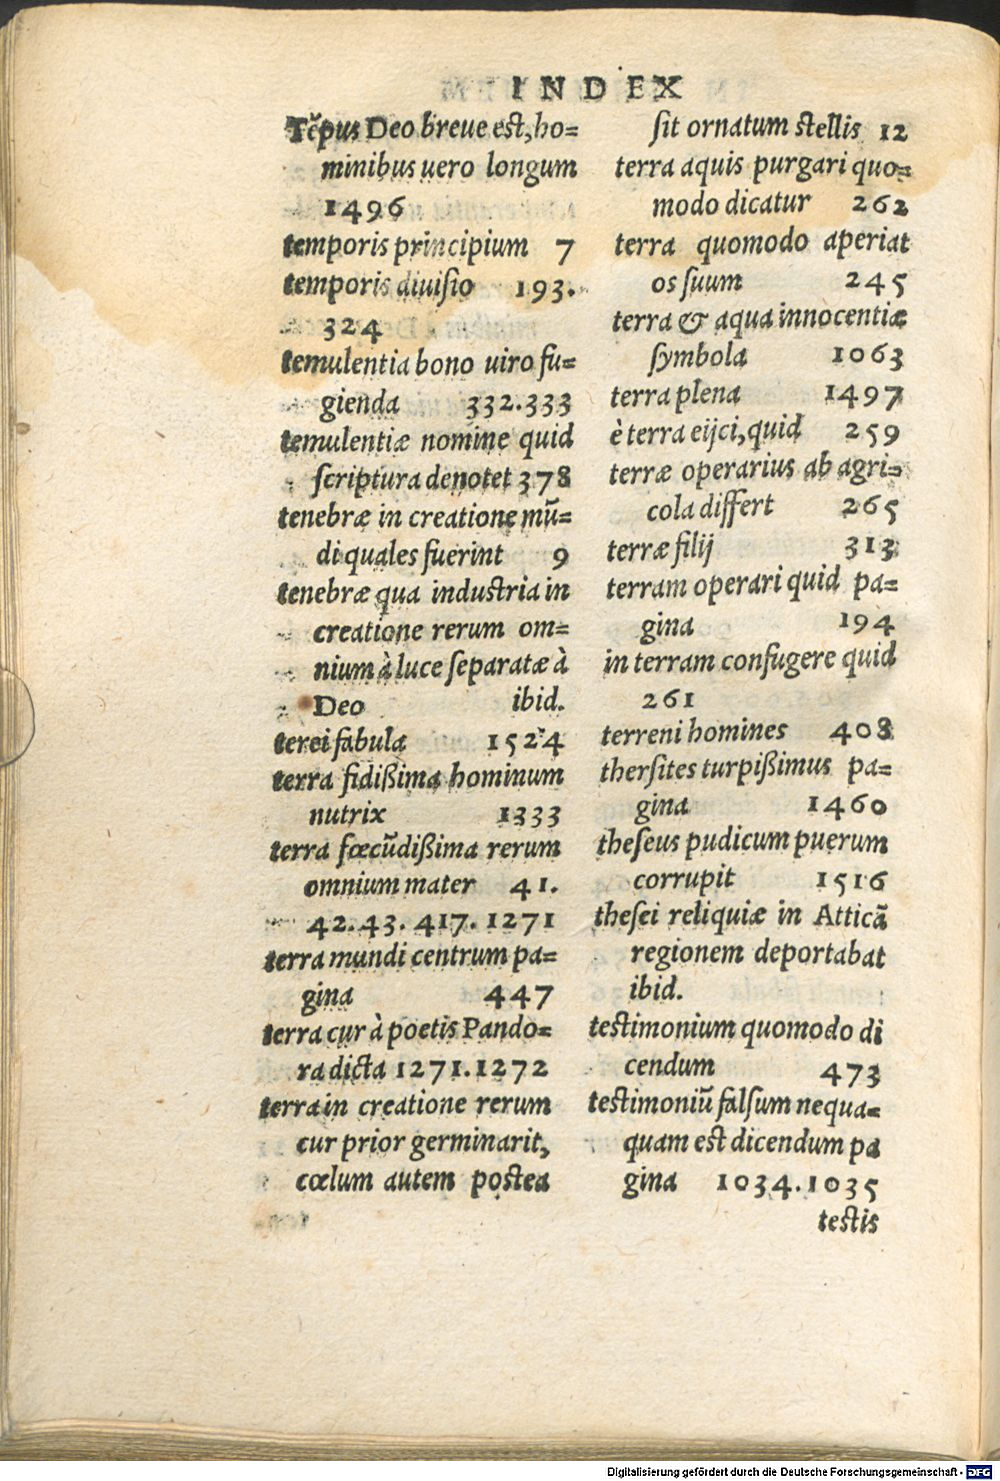 INDEX
Tẽpus Deo breue est, ho=
minibus uero longum
1496
temporis principium 7
temporis diuisio 193.
324
temulentia bono uiro fu=
gienda 332.333
temulentiæ nomine quid
scriptura denotet 378
tenebræ in creatione mũ=
di quales fuerint 9
tenebræ qua industria in
creatione rerum om=
nium à luce separatæ à
Deo ibid.
terei fabula 1524
terra fidißima hominum
nutrix 1333
terra fœcũdißima rerum
omnium mater 41.
42.43. 417. 1271
terra mundi centrum pa=
gina 447
terra cur à poetis Pando=
ra dicta 1271.1272
terra in creatione rerum
cur prior germinarit,
cœlum autem postea
sit ornatum stellis 12
terra aquis purgari quo=
modo dicatur 262
terra quomodo aperiat
os suum 245
terra & aqua innocentiæ
symbola 1063
terra plena 1497
è terra eijci, quid 259
terræ operarius ab agri=
cola differt 265
terræ filij 313
terram operari quid pa=
gina 194
in terram confugere quid
261
terreni homines 408
thersites turpißimus pa=
gina 1460
theseus pudicum puerum
corrupit 1516
thesei reliquiæ in Atticã
regionem deportabat
ibid.
testimonium quomodo di
cendum 473
testimoniũ falsum nequa=
quam est dicendum pa
gina 1034.1035
testis
Digitalisierung gefördert durch die Deutsche Forschungsgemeinschaft - DFG